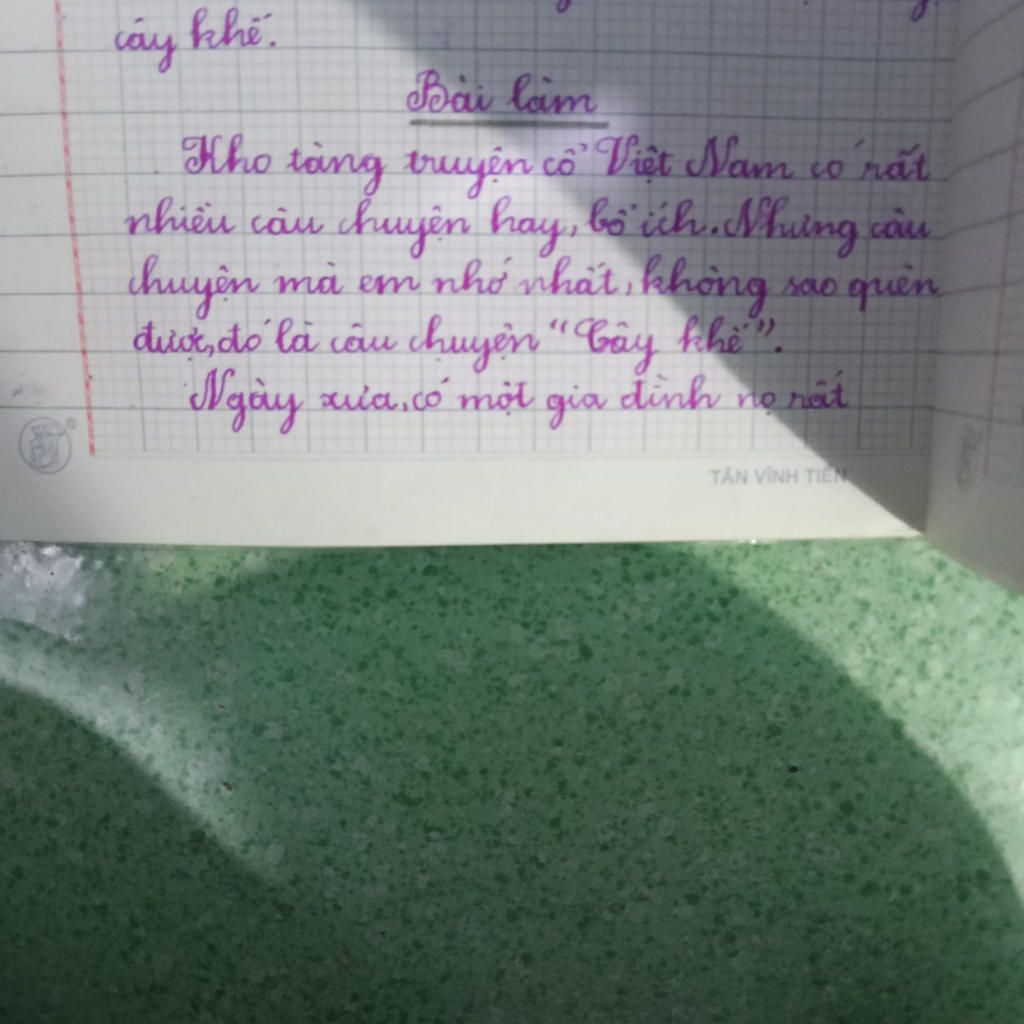 cây khế.
Bài làm
Kho tàng truyện cổ Việt Nam có rất
nhiều câu chuyện hay, bổ ích. Nhưng câu
chuyện mà em nhớ nhất, không sao quên
được, đó là câu chuyện “Cây khế”.
Ngày xưa, có một gia đình nọ rất
TÂN VĨNH TIẾN